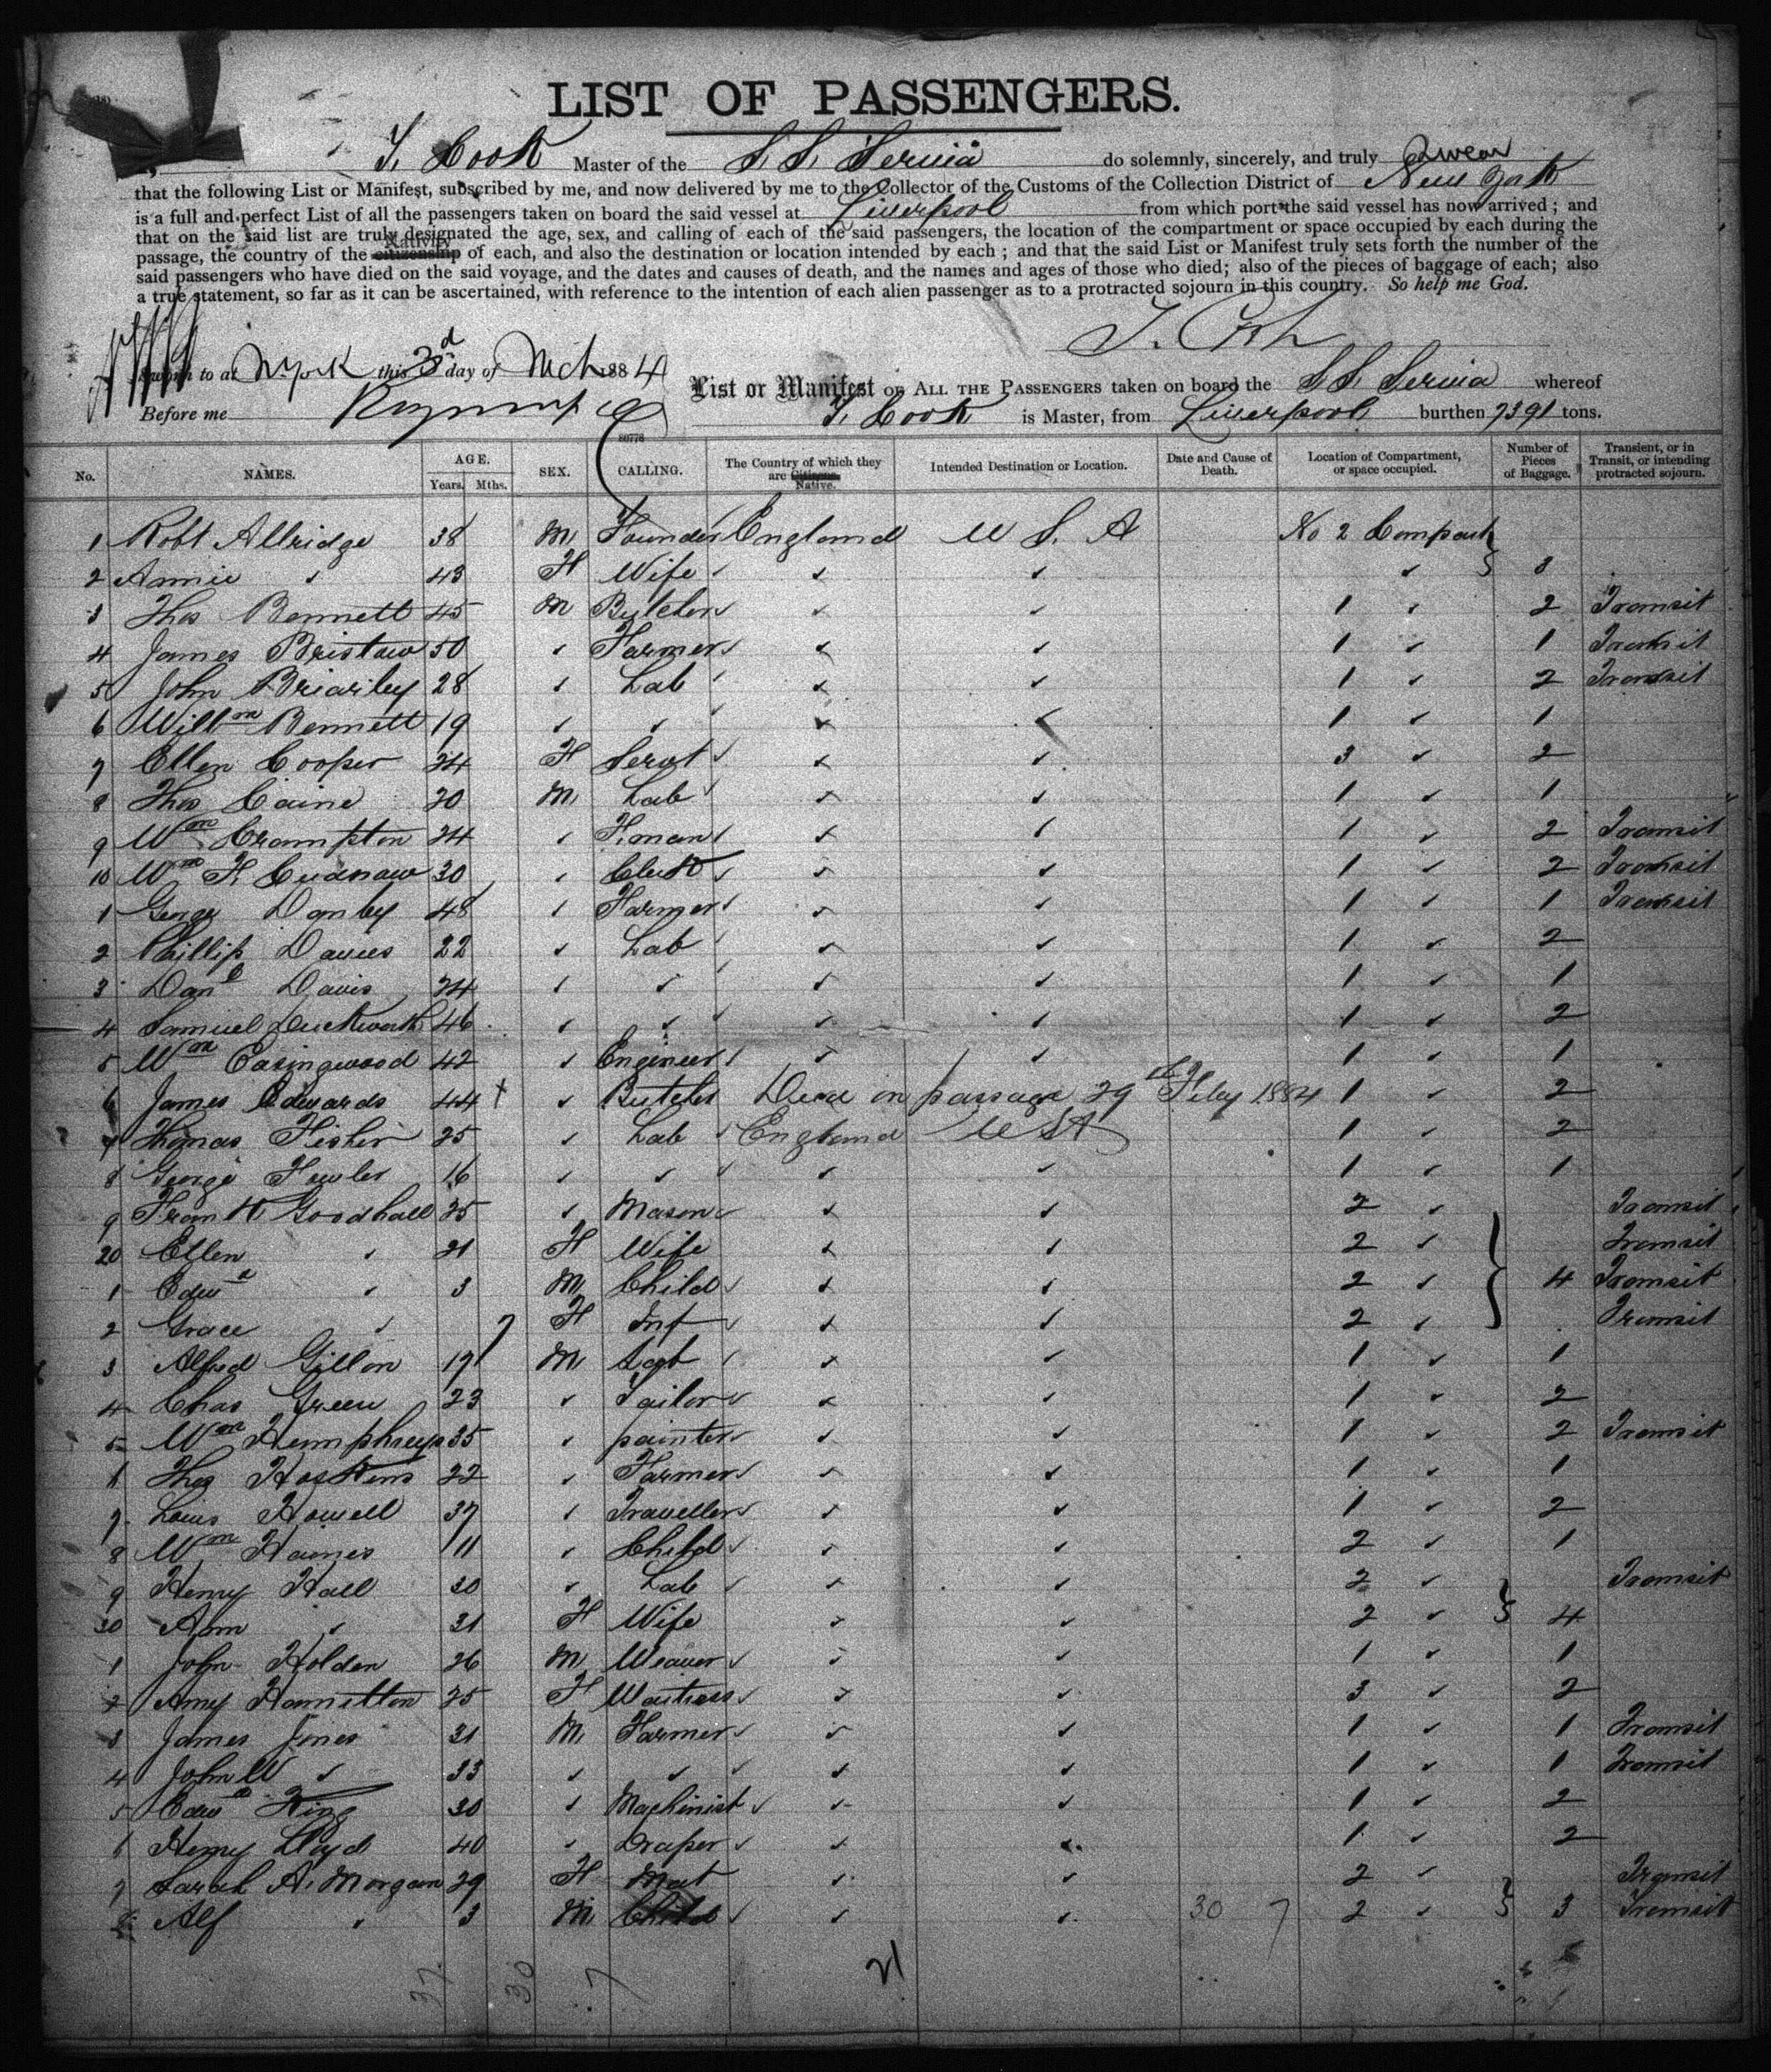 LIST OF PASSENGERS.
T. Cook Master of the S.S. Servia do solemnly, sincerely, and truly swear
that the following List or Manifest, subscribed by me, and now delivered by me to the Collector of the Customs of the Collection District of New York
is a full and perfect List of all the passengers taken on board the said vessel at Liverpool from which port the said vessel has now arrived ; and
that on the said list are truly designated the age, sex, and calling of each of the said passengers, the location of the compartment or space occupied by each during the
Nativity
passage, the country of the citizenship of each, and also the destination or location intended by each ; and that the said List or Manifest truly sets forth the number of the
said passengers who have died on the said voyage, and the dates and causes of death, and the names and ages of those who died; also of the pieces of baggage of each; also
a true statement, so far as it can be ascertained, with reference to the intention of each alien passenger as to a protracted sojourn in this country. So help me God.
Sworn to at N. York this 3d day of Mch 1884
List or Manifest OF ALL THE PASSENGERS taken on board the S.S. Servia whereof
Before me
T. Cook is Master, from Liverpool burthen 7391 tons.
60776
No. NAMES. AGE. Years. Mths. SEX. CALLING. The Country of which they are Citizens. Native. Intended Destination or Location. Date and Cause of Death. Location of Compartment, or space occupied. Number of Pieces of Baggage. Transient, or in Transit, or intending protracted sojourn.
1 Robt Allridge 38 M Founder England U S. A No 2 Compart
2 Annie " 43 F Wife " " " 3
3 Thos Bennett 45 M Butcher " " 1 " 2 Transit
4 James Bristow 50 " Farmer " " 1 " 1 Transit
5 John Briarley 28 " Lab " " 1 " 2 Transit
6 Willm Bennett 19 " " " " 1 " 1
7 Ellen Cooper 24 F Servt " " 3 " 2
8 Thos Caine 20 M Lab " " 1 " 1
9 Wm Crampton 24 " F.man " " 1 " 2 Transit
10 Wm F. 30 " Clerk " " 1 " 2 Transit
1 George Danby 48 " Farmer " " 1 " 1 Transit
2 Phillip Davies 22 " Lab " " 1 " 2
3 Danl Davis 24 " " " " 1 " 1
4 Samuel Duckworth 46 " " " " 1 " 2
5 Wm Easingwood 42 " Engineer " " 1 " 1
6 James Edwards 44 + " Butcher Died on passage 29th Feby 1884 1 " 2
7 Thomas Fisher 25 " Lab England U S A 1 " 2
8 George Fowler 16 " " " " 1 " 1
9 Frank Goodhall 25 " Mason " " 2 " Transit
20 Ellen " 21 F Wife " " 2 " Transit
1 Edwd " 3 M Child " " 2 " 4 Transit
2 Grace " 7 F Inf " " 2 " Transit
3 Alfred Gillon 19 M " " 1 " 1
4 Chas Green 23 " Tailor " " 1 " 2
5 Wm Humphreys 35 " painter " " 1 " 2 Transit
6 Thos Hoskens 22 " Farmer " " 1 " 1
7 Louis Howell 37 " Traveller " " 1 " 2
8 Wm Haines 11 " Child " " 2 " 1
9 Henry Hall 30 " Lab " " 2 " Transit
30 Ann " 31 F Wife " " 2 " 4
1 John Holden 26 M Weaver " " 1 " 1
2 Amy Hamilton 25 F Waitress " " 3 " 2
3 James Jones 31 M Farmer " " 1 " 1 Transit
4 John W " 33 " " " " 1 " 1 Transit
5 Edwd King 30 " Machinist " " 1 " 2
6 Henry Lloyd 40 " Draper " " 1 " 2
7 Sarah A. Morgan 29 F Mat " " 2 " Transit
8 Alf " 3 M Child " " 30 7 2 " 3 Transit
37 30 7 21